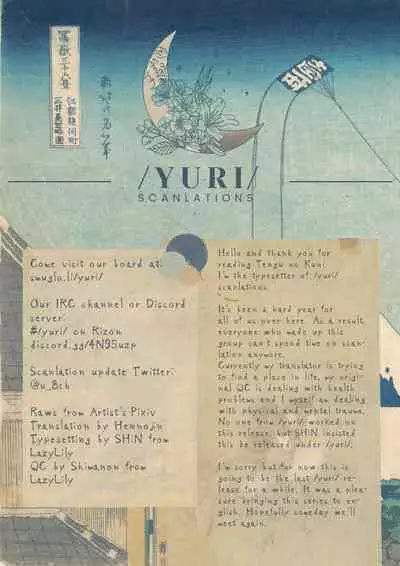 冨嶽三十六景
江都駿河町
三井見世略圖
/YURI/
SCANLATIONS
Come visit our board at:
smuglo.li/yuri/
Our IRC channel or Discord
server:
#/yuri/ on Rizon
discord.gg/4N95uzp
Scanlation update Twitter:
@u_8ch
Raws from Artist's Pixiv
Translation by Hennojin
Typesetting by SH!N from
LazyLily
QC by Shimanon from
LazyLily
Hello and thank you for
reading Tengu no Kuni.
I'm the typesetter of /yuri/
scanlations.
It's been a hard year for
all of us over here. As a result,
everyone who made up this
group can't spend time on scan-
lation anymore.
Currently my translator is trying
to find a place in life, my origi-
nal QC is dealing with health
problems and I myself am dealing
with physical and mental trauma.
No one from /yuri/ worked on
this release, but SH!N insisted
this be released under /yuri/.
I'm sorry but for now this is
going to be the last /yuri/ re-
lease for a while. It was a plea-
sure bringing this series to en-
glish. Hopefully someday we'll
meet again.